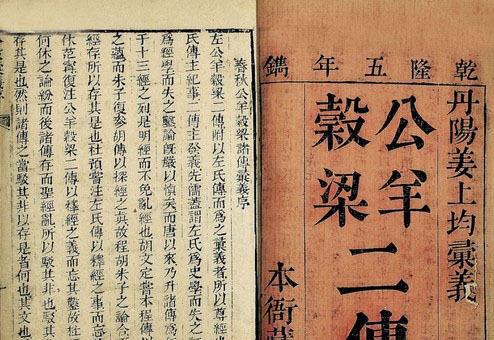 乾隆五年鐫
丹陽姜上均彙義
公羊
穀梁
二傳
本衙藏
春秋公羊穀梁諸傳彙義序
公羊穀梁二傳附以左氏傳而爲之彙義者所以尊經也
氏傳主紀事二傳主發義先儒蓋謂左氏爲史學而失之
爲經學而失之鑿論旣嚴以愼矣而唐以來乃升諸傳爲
于十三經之列是明經而不免亂經也胡文定嘗本程傳以
之蘊而朱子復參胡傳以採經之真故程胡朱子之論合
經存所以存其是也杜預嘗注左氏傳以釋經之事而忘
休范甯復注公羊穀梁二傳以釋經之義而忘其鑿故杜
何休之論紛而後諸傳存而聖經亂所以駁其非也駁其
存其是也然則諸傳之當駁其非以存是者何也其文也